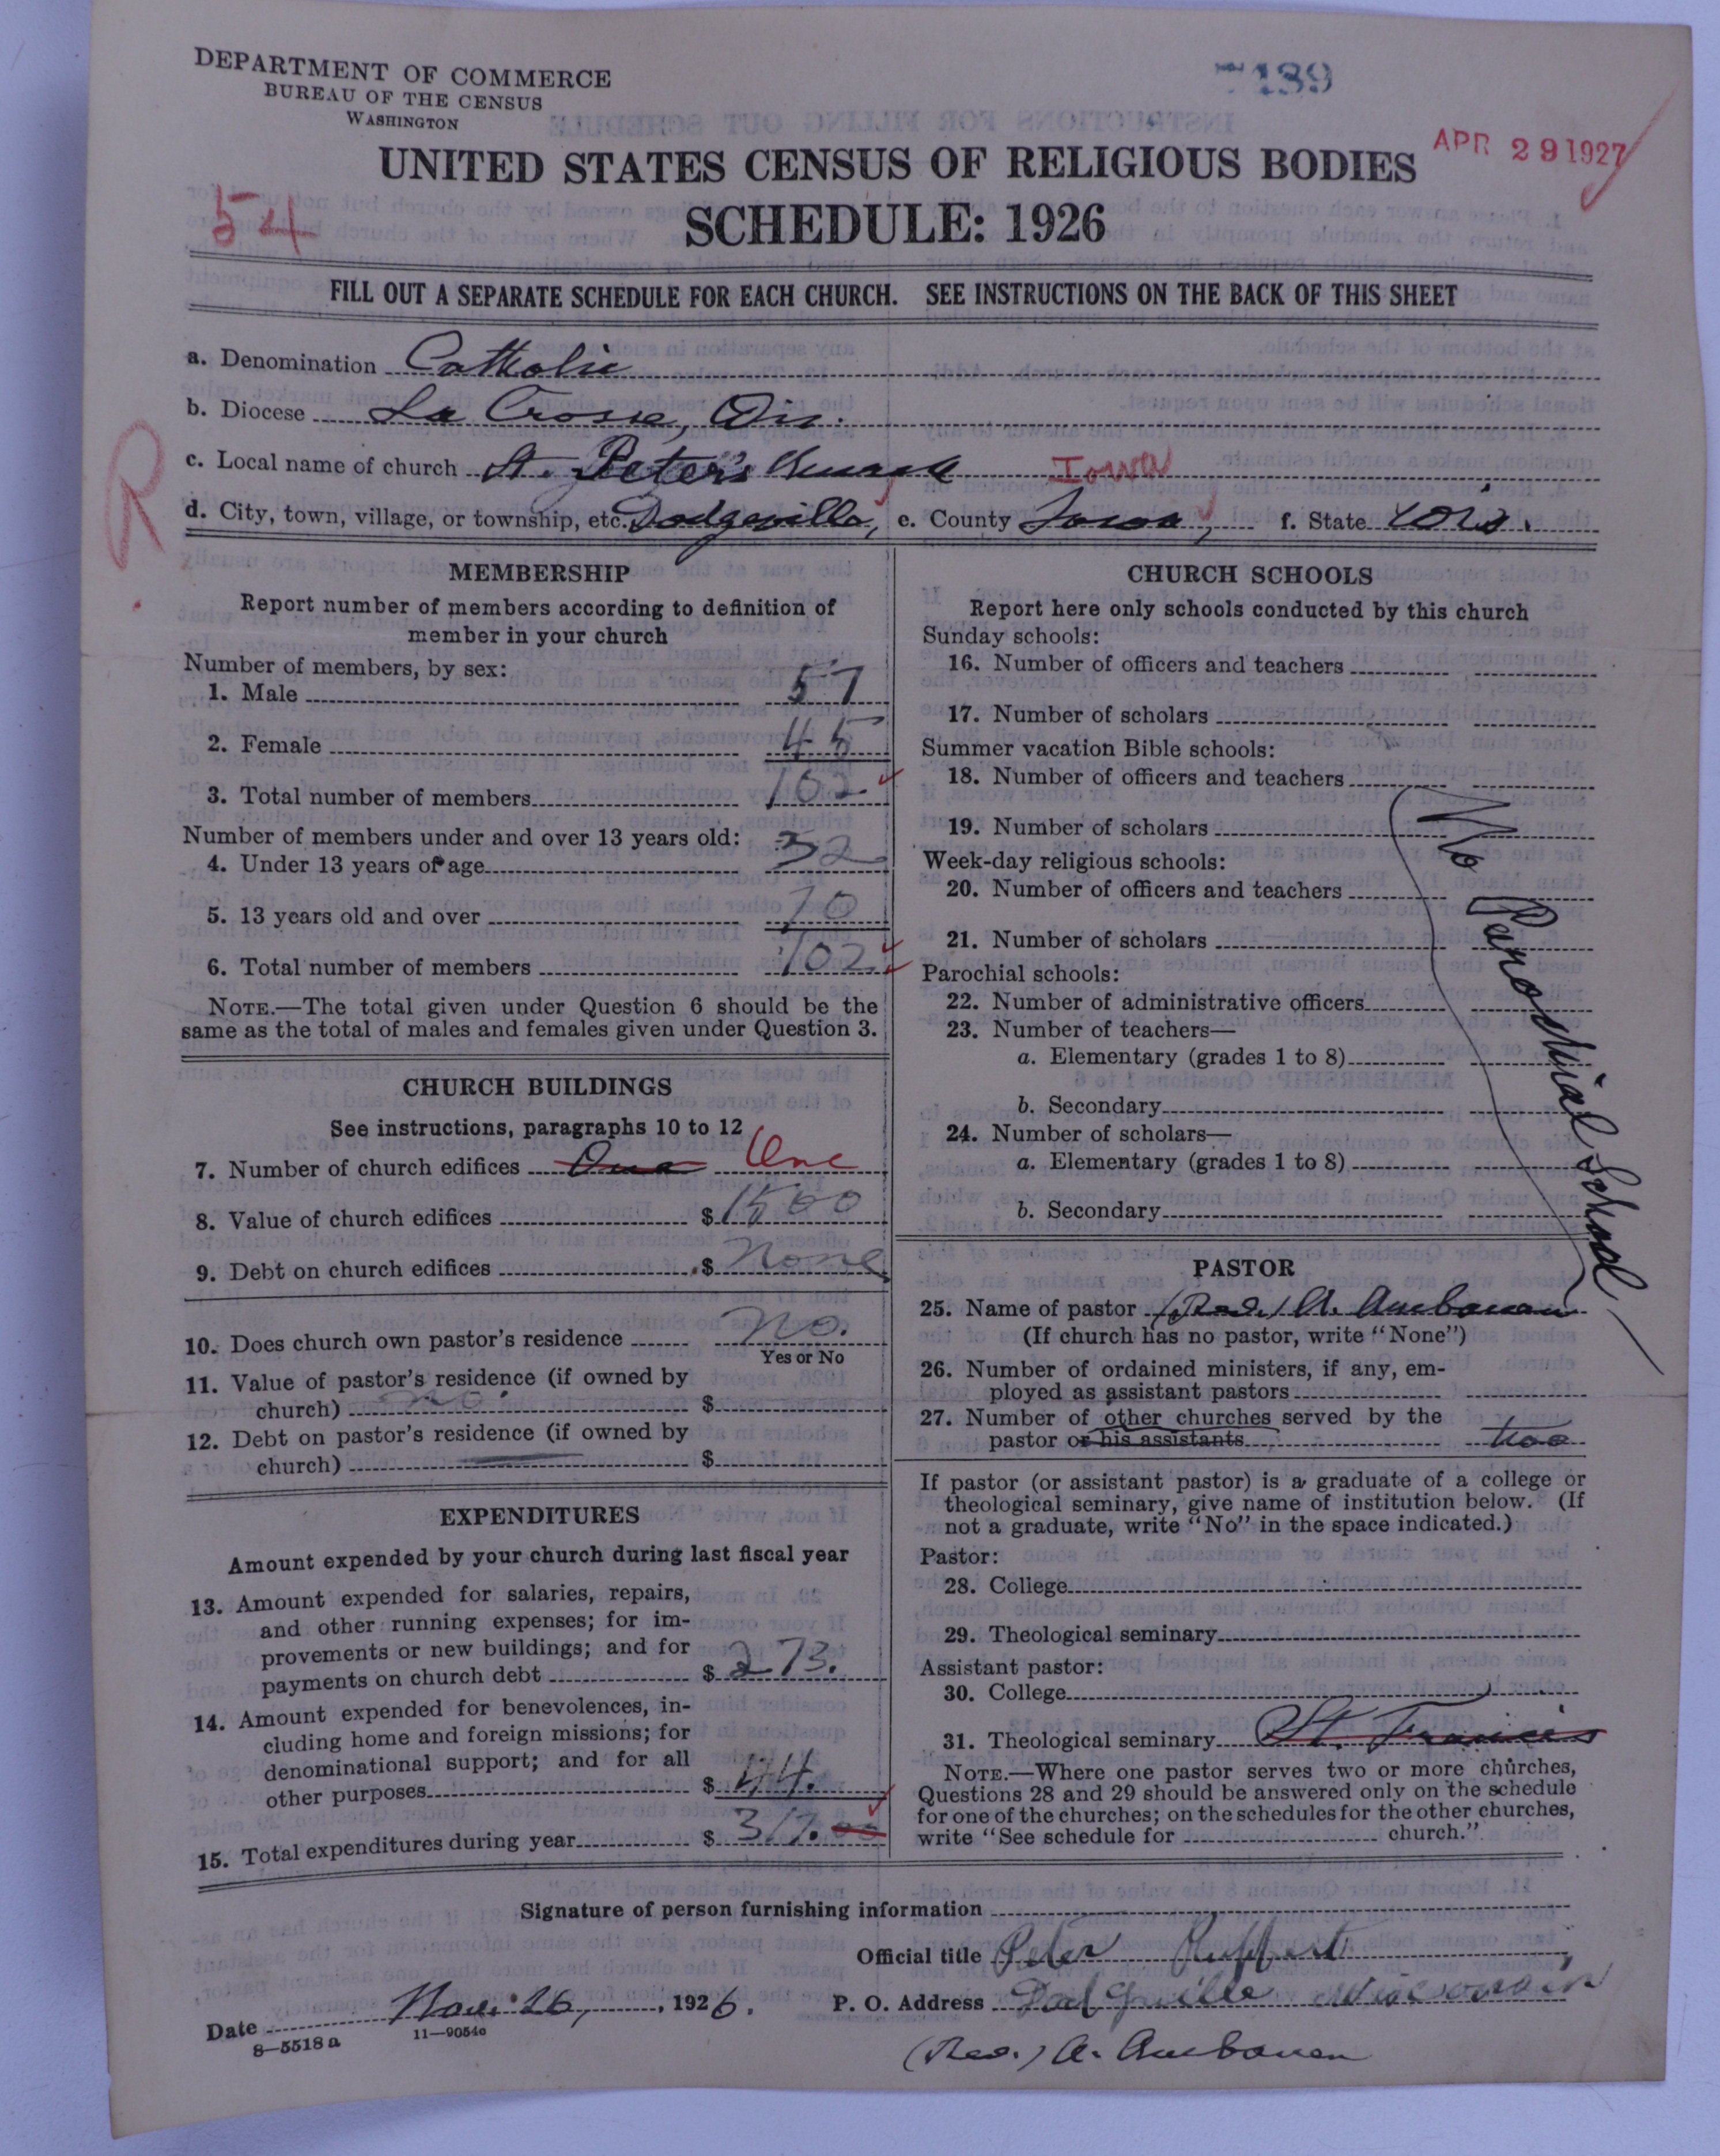 DEPARTMENT OF COMMERCE
BUREAU OF THE CENSUS
WASHINGTON
7139
APR 29 1927
UNITED STATES CENSUS OF RELIGIOUS BODIES
54
SCHEDULE: 1926
FILL OUT A SEPARATE SCHEDULE FOR EACH CHURCH. SEE INSTRUCTIONS ON THE BACK OF THIS SHEET
a. Denomination Catholic
b. Diocese La Crosse, Wis.
R
c. Local name of church St. Peter's Church Iowa
d. City, town, village, or township, etc. Dodgeville, e. County Iowa, f. State Wis.
MEMBERSHIP
Report number of members according to definition of
member in your church
Number of members, by sex:
1. Male 57
2. Female 45
3. Total number of members 102
Number of members under and over 13 years old:
4. Under 13 years of age 32
5. 13 years old and over 70
6. Total number of members 102
NOTE.—The total given under Question 6 should be the
same as the total of males and females given under Question 3.
CHURCH BUILDINGS
See instructions, paragraphs 10 to 12
7. Number of church edifices One One
8. Value of church edifices $ 1500
9. Debt on church edifices $ None
10. Does church own pastor's residence No.
Yes or No
11. Value of pastor's residence (if owned by
church) no. $
12. Debt on pastor's residence (if owned by
church) $
EXPENDITURES
Amount expended by your church during last fiscal year
13. Amount expended for salaries, repairs,
and other running expenses; for im-
provements or new buildings; and for
payments on church debt $ 273.
14. Amount expended for benevolences, in-
cluding home and foreign missions; for
denominational support; and for all
other purposes $ 44.
15. Total expenditures during year $ 317. 00
CHURCH SCHOOLS
Report here only schools conducted by this church
Sunday schools:
16. Number of officers and teachers
17. Number of scholars
Summer vacation Bible schools:
18. Number of officers and teachers
19. Number of scholars
Week-day religious schools:
20. Number of officers and teachers
21. Number of scholars
Parochial schools:
22. Number of administrative officers
23. Number of teachers—
a. Elementary (grades 1 to 8)
b. Secondary
24. Number of scholars—
a. Elementary (grades 1 to 8)
b. Secondary
No Parochial School
PASTOR
25. Name of pastor (Rev.) A.
(If church has no pastor, write "None")
26. Number of ordained ministers, if any, em-
ployed as assistant pastors
27. Number of other churches served by the
pastor or his assistants two
If pastor (or assistant pastor) is a graduate of a college or
theological seminary, give name of institution below. (If
not a graduate, write "No" in the space indicated.)
Pastor:
28. College
29. Theological seminary
Assistant pastor:
30. College
31. Theological seminary St. Francis
NOTE.—Where one pastor serves two or more churches,
Questions 28 and 29 should be answered only on the schedule
for one of the churches; on the schedules for the other churches,
write "See schedule for church."
Signature of person furnishing information
Official title Peter
Date Nov. 26, 1926. P. O. Address Dodgville Wisconsin
8—5518a 11—9054c
(Rev.) A.